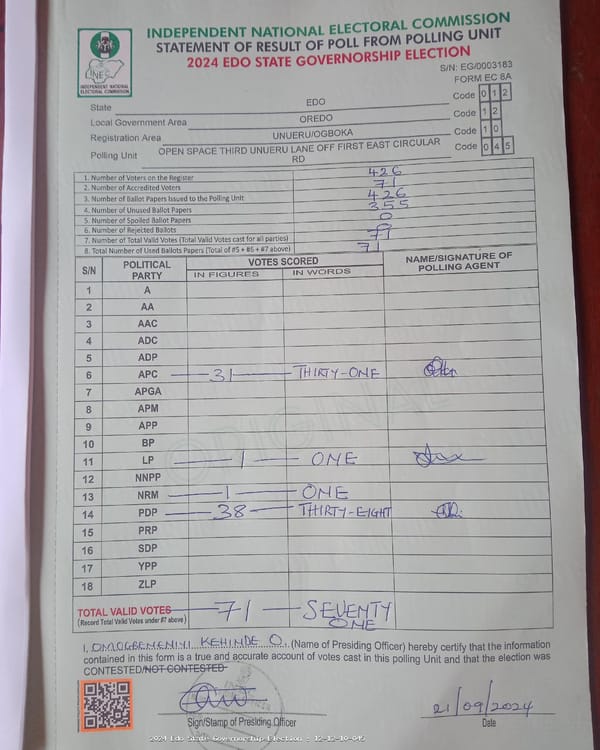 INDEPENDENT NATIONAL ELECTORAL COMMISSION
STATEMENT OF RESULT OF POLL FROM POLLING UNIT
2024 EDO STATE GOVERNORSHIP ELECTION
INEC
INDEPENDENT NATIONAL
ELECTORAL COMMISSION
S/N: EG/0003163
FORM EC 8A
State EDO Code 0 1 2
Local Government Area OREDO Code 1 2
Registration Area UNUERU/OGBOKA Code 1 0
Polling Unit OPEN SPACE THIRD UNUERU LANE OFF FIRST EAST CIRCULAR RD Code 0 4 5
1. Number of Voters on the Register 426
2. Number of Accredited Voters 71
3. Number of Ballot Papers Issued to the Polling Unit 426
4. Number of Unused Ballot Papers 355
5. Number of Spoiled Ballot Papers 0
6. Number of Rejected Ballots
7. Number of Total Valid Votes (Total Valid Votes cast for all parties) 71
8. Total Number of Used Ballots Papers (Total of #5 + #6 + #7 above) 71
S/N POLITICAL PARTY VOTES SCORED NAME/SIGNATURE OF POLLING AGENT
IN FIGURES IN WORDS
1 A
2 AA
3 AAC
4 ADC
5 ADP
6 APC 31 THIRTY-ONE
7 APGA
8 APM
9 APP
10 BP
11 LP 1 ONE
12 NNPP
13 NRM 1 ONE
14 PDP 38 THIRTY-EIGHT
15 PRP
16 SDP
17 YPP
18 ZLP
ORIGINAL
TOTAL VALID VOTES 71 SEVENTY ONE
(Record Total Valid Votes under #7 above)
I, OMOGBEMENIYI KEHINDE O. (Name of Presiding Officer) hereby certify that the information
contained in this form is a true and accurate account of votes cast in this polling Unit and that the election was
CONTESTED/NOT CONTESTED
Sign/Stamp of Presiding Officer
21/09/2024
Date
2024 Edo State Governorship Election - 12-12-10-045